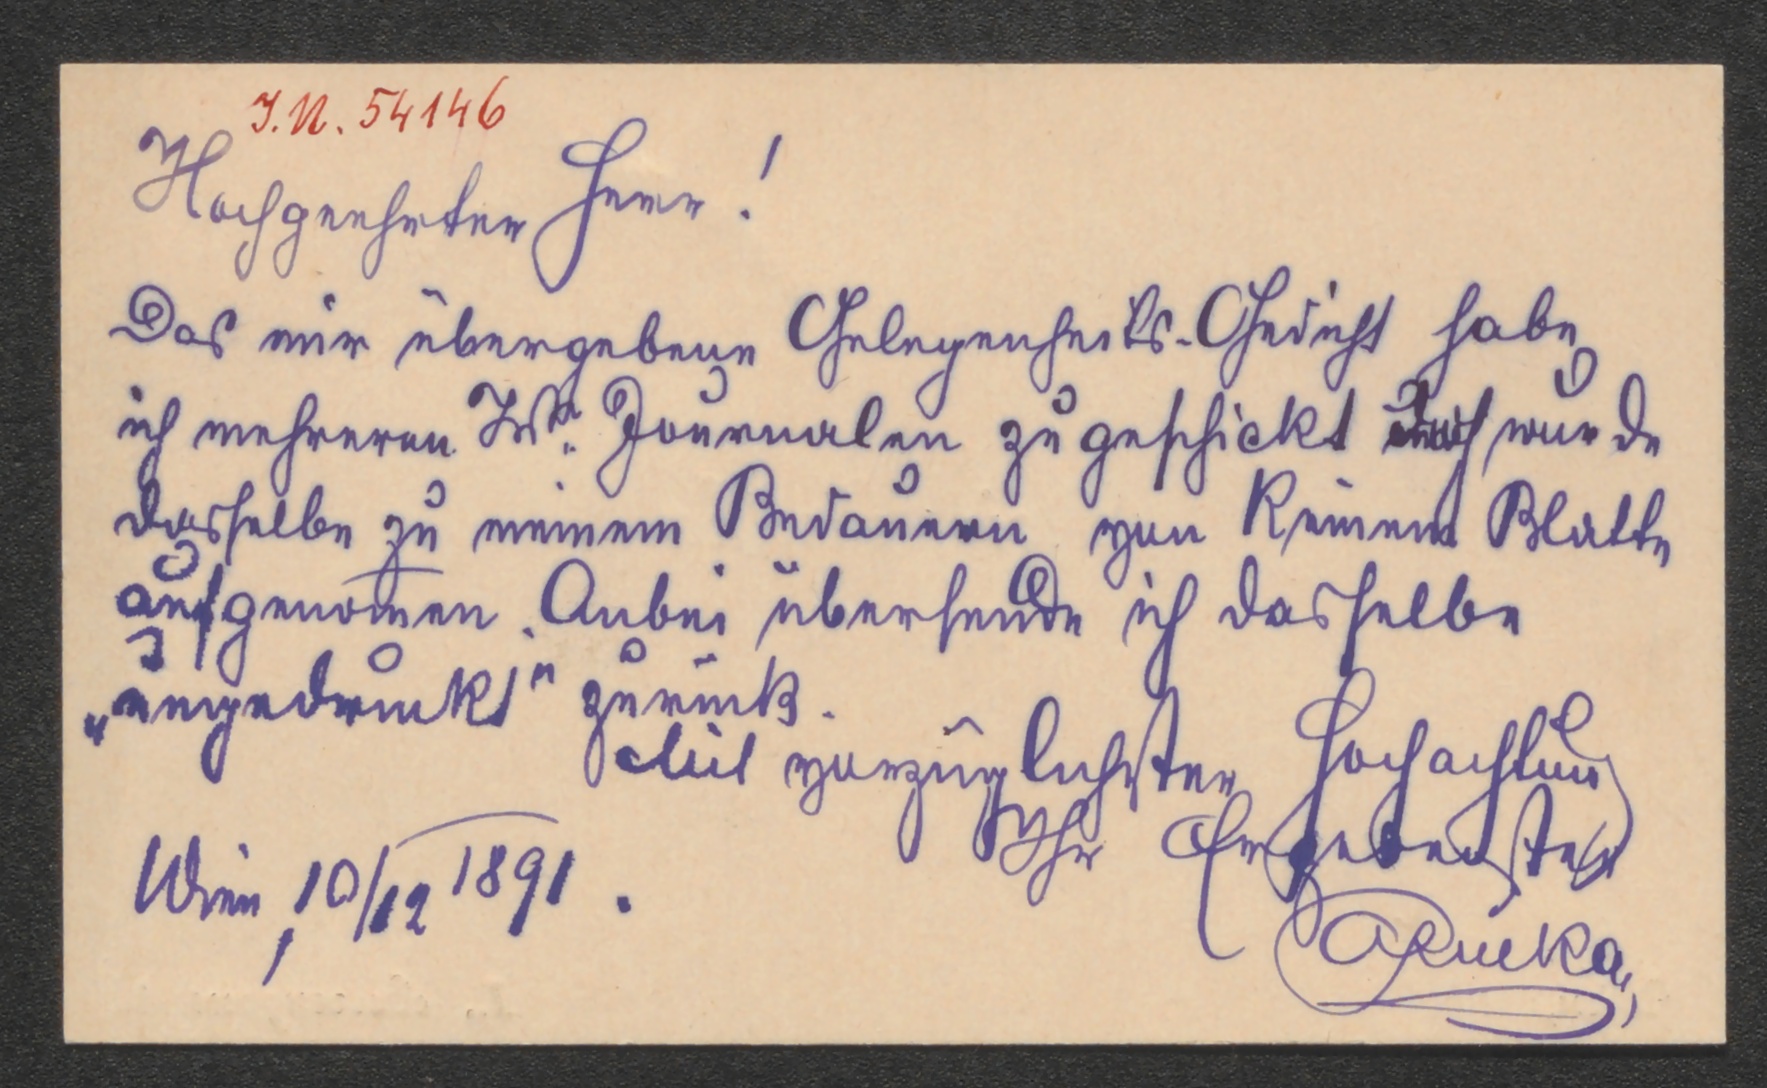 I.N. 54146
Hochgeehrter Herr!
Das mir übergebene Gelegenheits-Gedicht habe
ich mehreren Journalen zugeschickt doch wurde
dasselbe zu meinem Bedauern von keinem Blatte
aufgenom̅en. Anbei übersende ich dasselbe
„ungedruckt" zurück.
Mit vorzüglichster Hochachtung
Ihr Ergebenster
Wien, 10/12 1891.